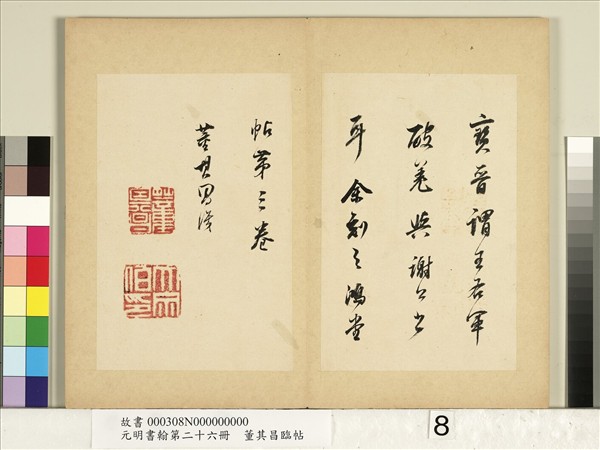 寶晉謂王右軍
破羌與謝公
耳余刻之鴻堂
帖第三卷
董其昌識
大宗伯印
故書 000308N000000000
元明書翰第二十六冊 董其昌臨帖
8